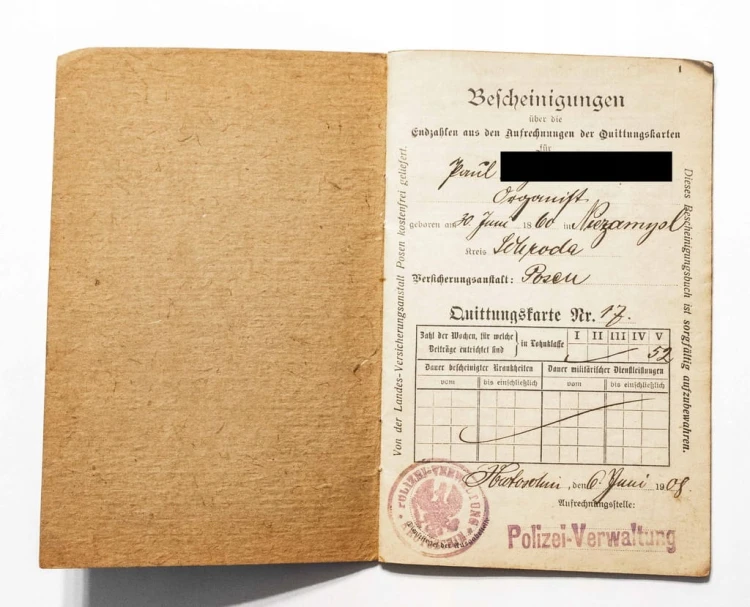 Bescheinigungen
über die
Endzahlen aus den Aufrechnungen der Quittungskarten
für
Paul
Organist
geboren am 30. Juni 1860 in Niezamysl
Kreis Schroda
Versicherungsanstalt: Posen
Quittungskarte Nr. 17.
Zahl der Wochen, für welche Beiträge entrichtet sind } in Lohnklasse I II III IV V
52
Dauer bescheinigter Krankheiten Dauer militärischer Dienstleistungen
vom bis einschließlich vom bis einschließlich
Krotoschin, den 6. Juni 1908
Aufrechnungsstelle:
Polizei-Verwaltung
POLIZEI-VERWALTUNG
Von der Landes-Versicherungsanstalt Posen kostenfrei geliefert.
Dieses Bescheinigungsbuch ist sorgfältig aufzubewahren.